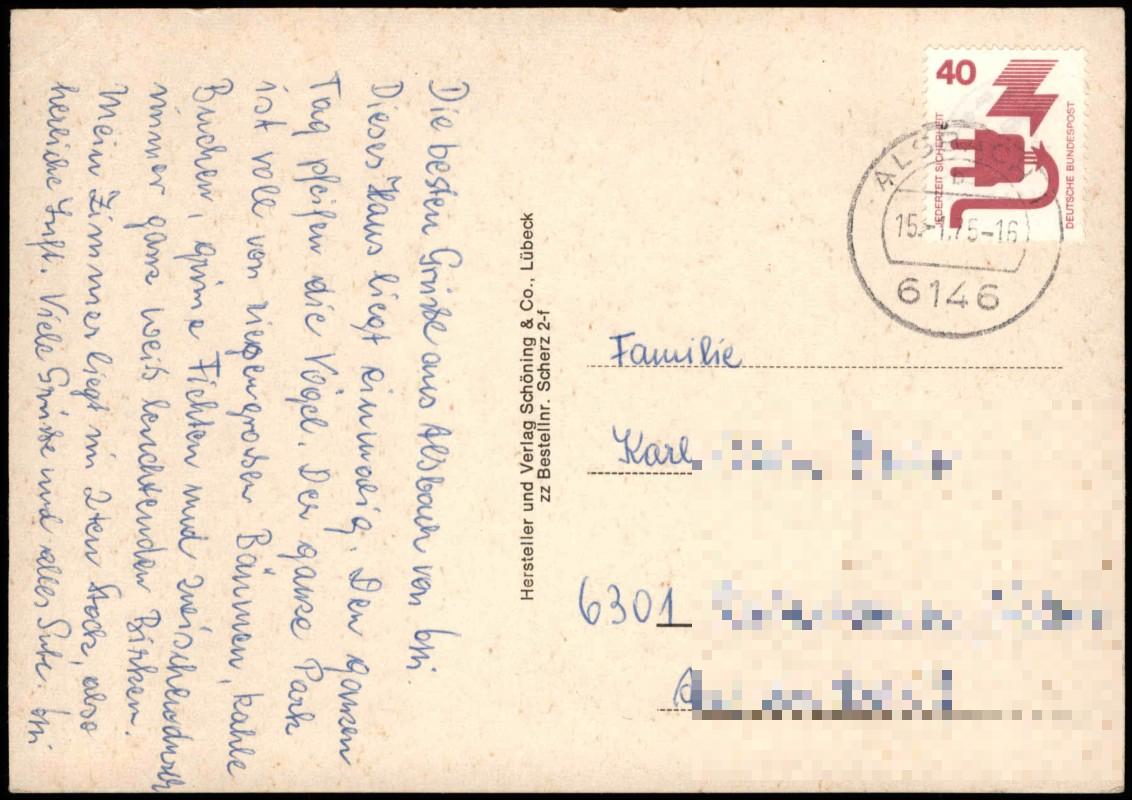 Die besten Grüße aus Alsbach von
Dieses Haus liegt einmalig. Den ganzen
Tag pfeifen die Vögel. Der ganze Park
ist voll von riesengroßen Bäumen, kahle
Buchen, grüne Fichten und zwischendurch
immer ganz weiß leuchtenden Birken.
Mein Zimmer liegt im 2ten Stock, also
herrliche Luft. Viele Grüße und alles Gute.
Hersteller und Verlag Schöning & Co., Lübeck
zz Bestellnr. Scherz 2-f
40
JEDERZEIT SICHERHEIT
DEUTSCHE BUNDESPOST
ALSBACH
6146
Familie
Karl
6301